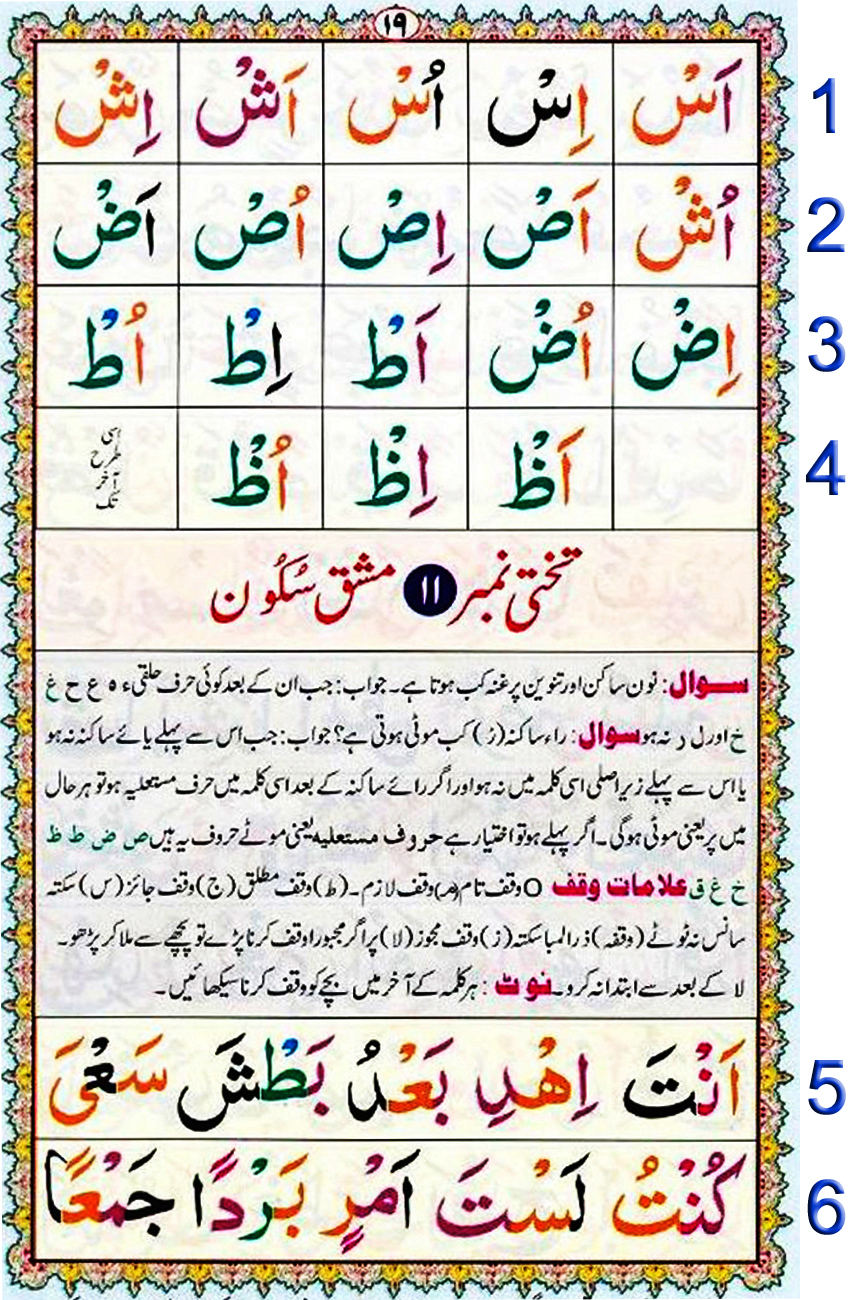 ١٩
اَسْ اِسْ اُسْ اَشْ اِشْ 1
اُشْ اَصْ اِصْ اُصْ اَضْ 2
اِضْ اُضْ اَطْ اِطْ اُطْ 3
اَظْ اِظْ اُظْ اسی طرح آخر تک 4
تختی نمبر ١١ مشق سُکُون
سوال: نون ساکن اور تنوین پر غنہ کب ہوتا ہے۔ جواب: جب ان کے بعد کوئی حرف حلقی ء ہ ع ح غ
خ اور ل ر نہ ہو سوال: راء ساکنہ (رْ) کب موٹی ہوتی ہے؟ جواب: جب اس سے پہلے یائے ساکنہ نہ ہو
یا اس سے پہلے زیر اصلی اسی کلمہ میں نہ ہو اور اگر رائے ساکنہ کے بعد اسی کلمہ میں حرف مستعلیہ ہو تو ہر حال
میں پر یعنی موٹی ہوگی۔ اگر پہلے ہو تو اختیار ہے حروف مستعلیہ یعنی موٹے حروف یہ ہیں ص ض ط ظ
خ غ ق علامات وقف O وقف تام (مـ) وقف لازم۔ (ط) وقف مطلق (ج) وقف جائز (س) سکتہ
سانس نہ ٹوٹے (وقفہ) ذرا لمبا سکتہ (ز) وقف مجوز (لا) پر اگر مجبورا وقف کرنا پڑے تو پیچھے سے ملا کر پڑھو۔
لا کے بعد سے ابتدا نہ کرو۔ نوٹ: ہر کلمہ کے آخر میں بچے کو وقف کرنا سیکھائیں۔
اَنْتَ اِهْدِ بَعْدُ بَطْشَ سَعْیَ 5
كُنْتُ لَسْتَ اَمْرٍ بَرْدًا جَمْعًا 6